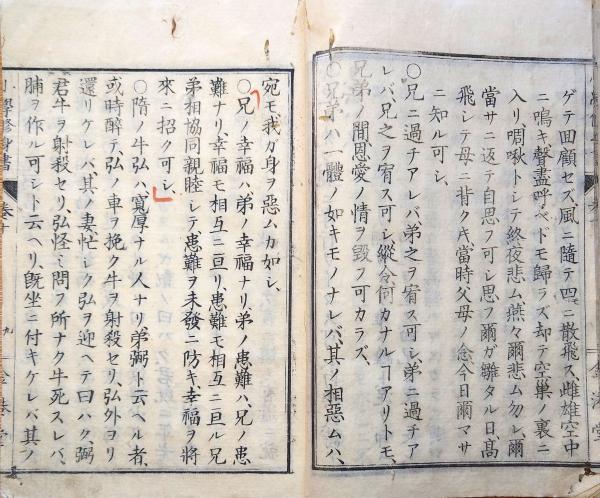 ゲテ田顧セズ、風ニ隨テ四ニ散飛ス雌雄空中
ニ鳴キ聲盡呼ベドモ歸ラズ却テ空巢ノ裏ニ
入リ啁啾トシテ終夜悲ム燕々爾悲ム勿レ、爾
當サニ返テ自思フ可シ思フ爾ガ雛タル日、髙
飛シテ母ニ背クキ、當時父母ノ念今日爾マサ
ニ知ル可シ、
〇兄ニ過チアレバ弟之ヲ宥ス可シ、弟ニ過チア
レバ、兄之ヲ宥ス可シ、縱令何カナルヿアリトモ、
兄弟ノ間恩愛ノ情ヲ毀フ可カラズ、
〇兄弟ハ一體ノ如キモノナレバ、其ノ相惡ムハ、
宛モ我ガ身ヲ惡ムカ如シ、
〇兄ノ幸福ハ弟ノ幸福ナリ、弟ノ患難ハ、兄ノ患
難ナリ、幸福モ相互ニ亘リ、患難モ相互ニ亘ル兄
弟相協同親睦シテ、患難ヲ未發ニ防キ幸福ヲ將
來ニ招ク可シ、
〇隋ノ牛弘ハ、寬厚ナル人ナリ弟弼ト云ヘル者、
或時醉テ弘ノ車ヲ挽ク牛ヲ射殺セリ、弘外ヨリ
還リケレバ、其ノ妻忙シク弘ヲ迎ヘテ曰ハク、弼
君牛ヲ射殺セリ、弘怪ミ問フ所ナク牛死スレバ、
脯ヲ作ル可シト云ヘリ、旣坐ニ付キケレバ、其ノ
小學修身書
卷十
九
金港堂